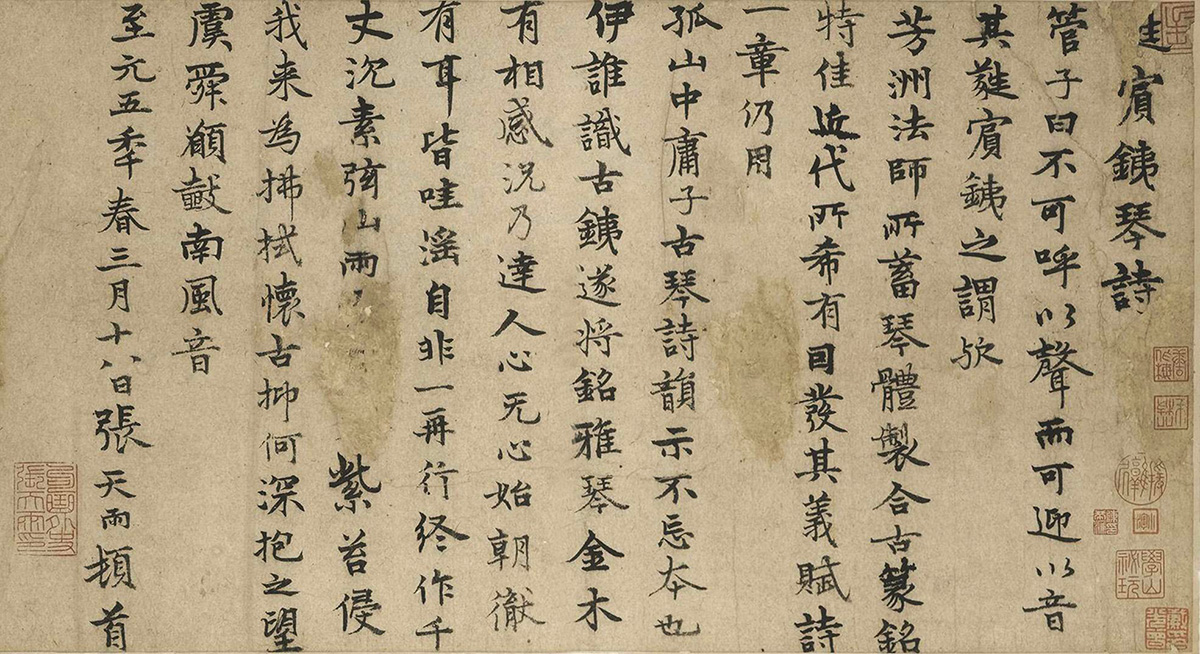 賓銕琴詩
管子曰不可呼以聲而可迎以音
其蕤賓銕之謂欤
芳洲法師所蓄琴體製合古篆銘
特佳近代所希有因發其義賦詩
一章仍用
孤山中庸子古琴詩韻示不忘本也
伊誰識古銕遂將銘雅琴金木
有相感況乃達人心无心始朝徹
有耳皆哇滛自非一再行終作千
丈沉素弦山雨紫苔侵
我来為拂拭懷古抑何深抱之望
虞舜願鼓南風音
至元五年春三月十八日張天雨頓首